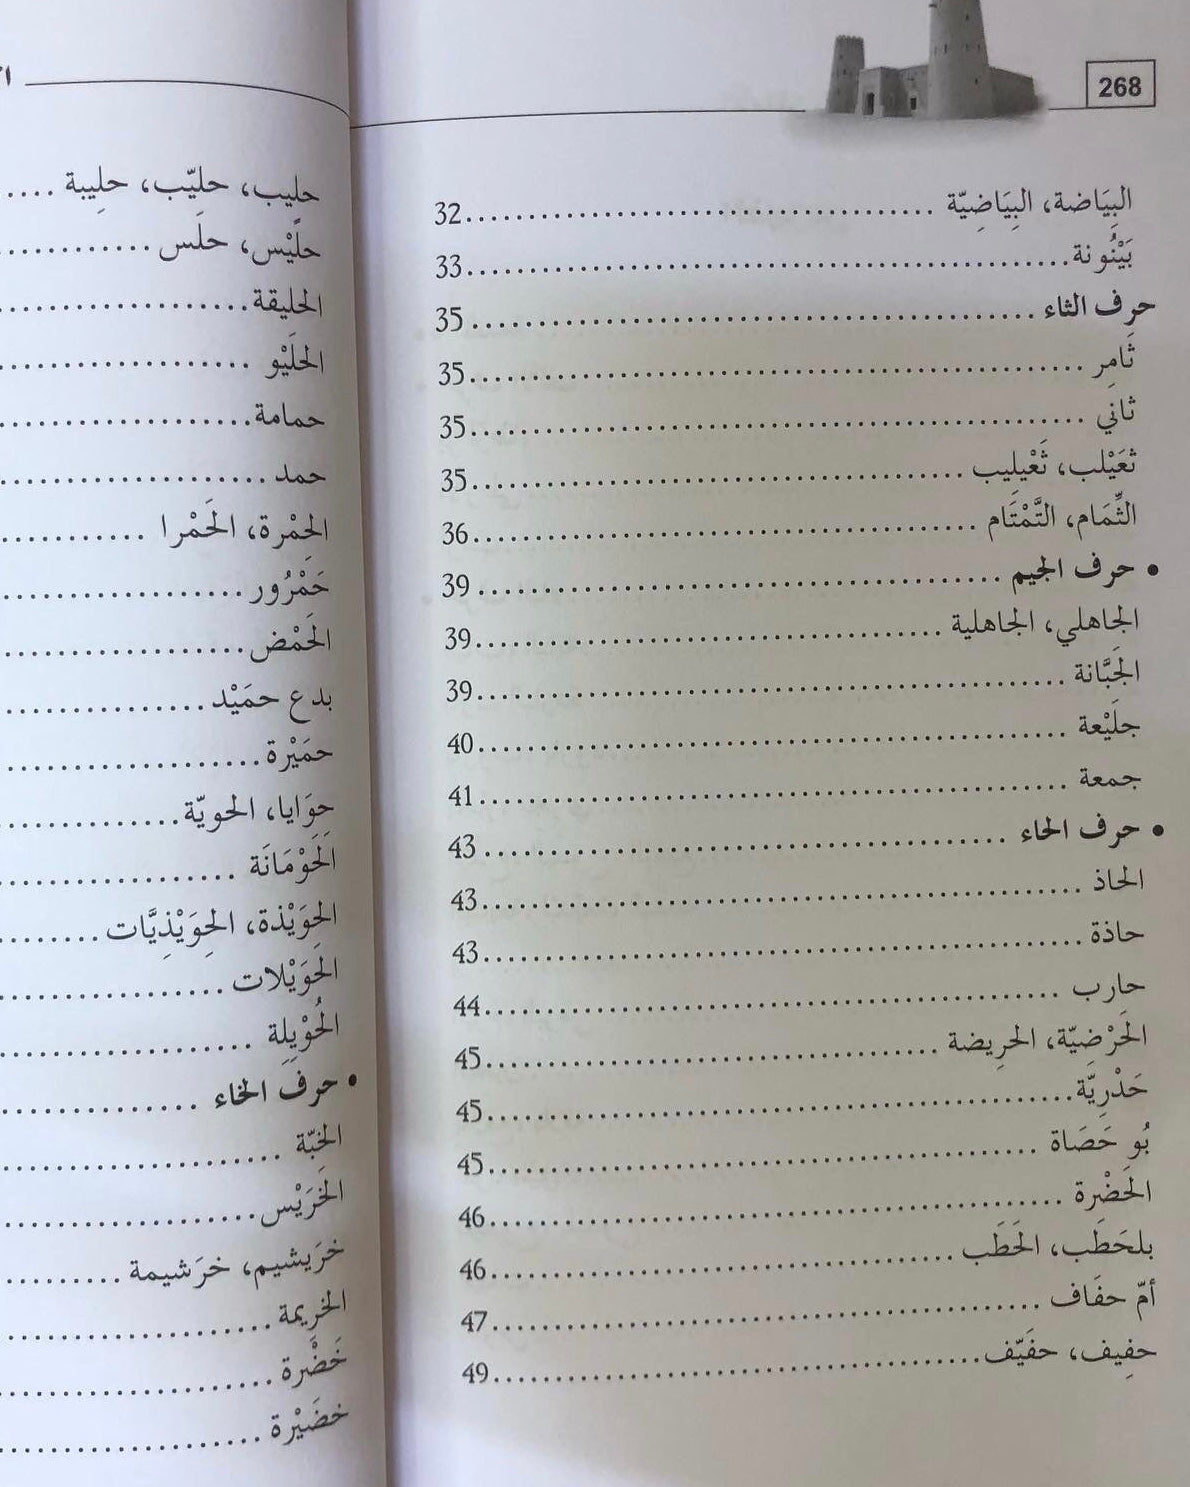 268
البِيَاضة، البِيَاضِيّة ........ 32
بَيْنُونة ........ 33
حرف الثاء ........ 35
ثَامِر ........ 35
ثاني ........ 35
ثعَيْلب، ثَعْيلِيب ........ 35
الثِّمَام، التَّمْتَام ........ 36
• حرف الجيم ........ 39
الجاهلي، الجاهلية ........ 39
الجَبَّانة ........ 39
جلَيْعة ........ 40
جمعة ........ 41
• حرف الحاء ........ 43
الحاذ ........ 43
حاذة ........ 43
حارب ........ 44
الحَرْضِيّة، الحرِيضة ........ 45
حَذْرِيَّة ........ 45
بُو حَصَاة ........ 45
الحَضْرة ........ 46
بلحَطَب، الحَطَب ........ 46
أمّ حفَاف ........ 47
حفِيف، حفَيّف ........ 49
حلِيب، حليّب، حلِيبة ........
حلَيْس، حلَس ........
الحليقة ........
الحلَيْو ........
حمامة ........
حمد ........
الحِمْرة، الحَمْرا ........
حَمْرُور ........
الحَمْض ........
بدع حمَيْد ........
حمَيْرة ........
حوَايا، الحويّة ........
الحَوْمَانَة ........
الحِوَيْذة، الحِوَيْذِيَّات ........
الحَوَيْلات ........
الحُوْيلِة ........
• حرف الخاء ........
الخبّة ........
الخرَيْس ........
خرَيشيم، خرَشيمة ........
الخرِيمة ........
خَضْرة ........
خضَيْرة ........